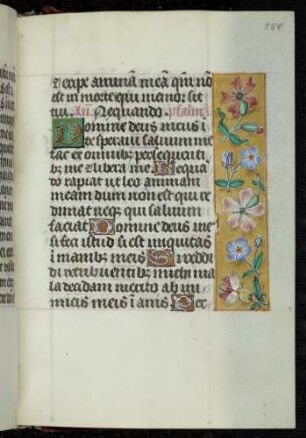 et eripe animam meā qm̄ nō
est in morte qui memor sit
tui. An̄. Nequando. psalm9
Domine deus meus ī
te speraui saluum me
fac ex omnibz persequenti
bz me et libera me. Nequā
do rapiat ut leo animam
meam dum non est qui re
dimat neqz qui saluum
faciat. Domine deus me9
si feci istud si est iniquitas
ī manibz meis. Si reddi
di retribuentibz michi ma
la decidam merito ab ini
micis meis īanis. Per